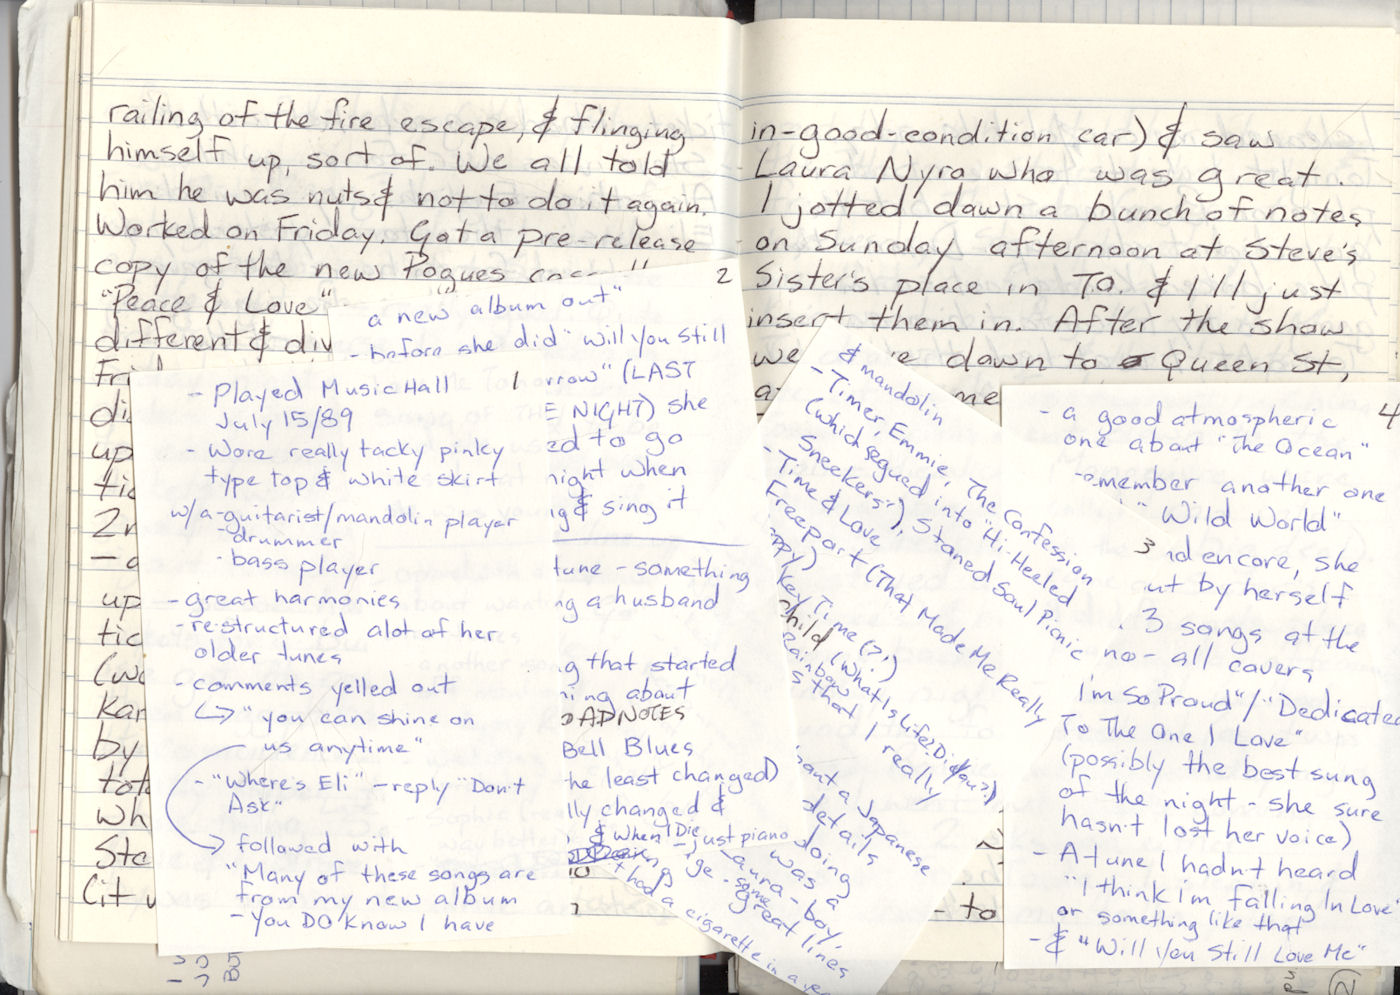 railing of the fire escape, & flinging
himself up, sort of. We all told
him he was nuts & not to do it again.
Worked on Friday. Got a pre-release
copy of the new Pogues
"Peace & Love"
different & div
Fri
di
up
tic
2n
up
tic
(wo
Kar
by
toto
wh
Ste
Cit
in-good-condition car) & saw
Laura Nyro who was great.
I jotted down a bunch of notes
on Sunday afternoon at Steve's
Sister's place in TO. & I'll just
insert them in. After the show
we down to Queen St,
me
- to
2
a new album out"
- before she did "will you still
rrow" (LAST
E NIGHT) she
ed to go
night when
ig & sing it
tune - something
ng a husband
g that started
ning about
OADNOTES
Bell Blues
he least changed)
lly changed &
& When I Die - just piano
- Played Music Hall
July 15/89
- Wore really tacky pinky
type top & white skirt
w/a - guitarist/mandolin player
- drummer
- bass player
- great harmonies
- re-structured alot of her
older tunes
- comments yelled out
"you can shine on
us anytime"
- "Where's Eli" - reply "Don't
Ask"
followed with
"Many of these songs are
from my new album
- you DO know I have
3
& mandolin
- Timer, Emmie, The Confession
(which segued into "Hi-Heeled
Sneekers"), Stoned Soul Picnic
- Time & Love
Freeport (That Made Me Really
ppy)
key Time (?!)
hild (What Is Life? Did you?)
Rainbow
s that I really
a Japanese
details
doing
was a
aura - boy,
- some great lines
had a cigarette in a
4
- a good atmospheric
one about "The Ocean"
- member another one
"Wild World"
nd encore, she
ut by herself
3 songs at the
no - all covers
I'm So Proud"/"Dedicated
To The One I Love"
(possibly the best sung
of the night - she sure
hasn't lost her voice)
- A tune I hadn't heard
"I think I'm falling In Love"
or something like that
- & "Will You Still Love Me"